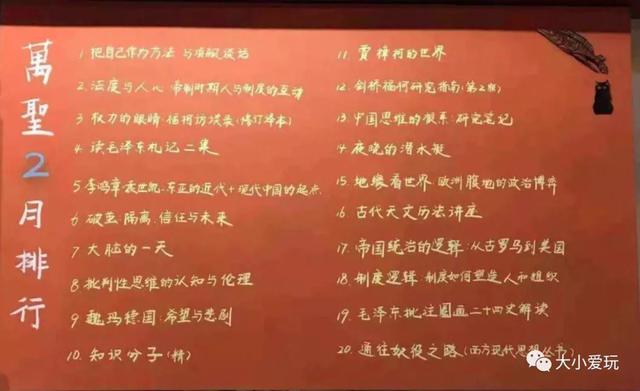 萬聖2月排行
1. 把自己作为方法 与项飙谈话
2. 法度与人心 帝制时期人与制度的互动
3. 权力的眼睛:福柯访谈录(修订译本)
4. 读毛泽东札记二集
5. 李鸿章袁世凯:东亚的近代+现代中国的起点
6. 破茧:隔离、信任与未来
7. 大脑的一天
8. 批判性思维的认知与伦理
9. 魏玛德国:希望与悲剧
10. 知识分子(精)
11. 贾樟柯的世界
12. 剑桥福柯研究指南(第2版)
13. 中国思维的根系:研究笔记
14. 夜晚的潜水艇
15. 地缘看世界:欧洲腹地的政治博弈
16. 古代天文历法讲座
17. 帝国统治的逻辑:从古罗马到美国
18. 制度逻辑:制度如何塑造人和组织
19. 毛泽东批注圈画二十四史解读
20. 通往奴役之路(西方现代思想丛书)
大小爱玩